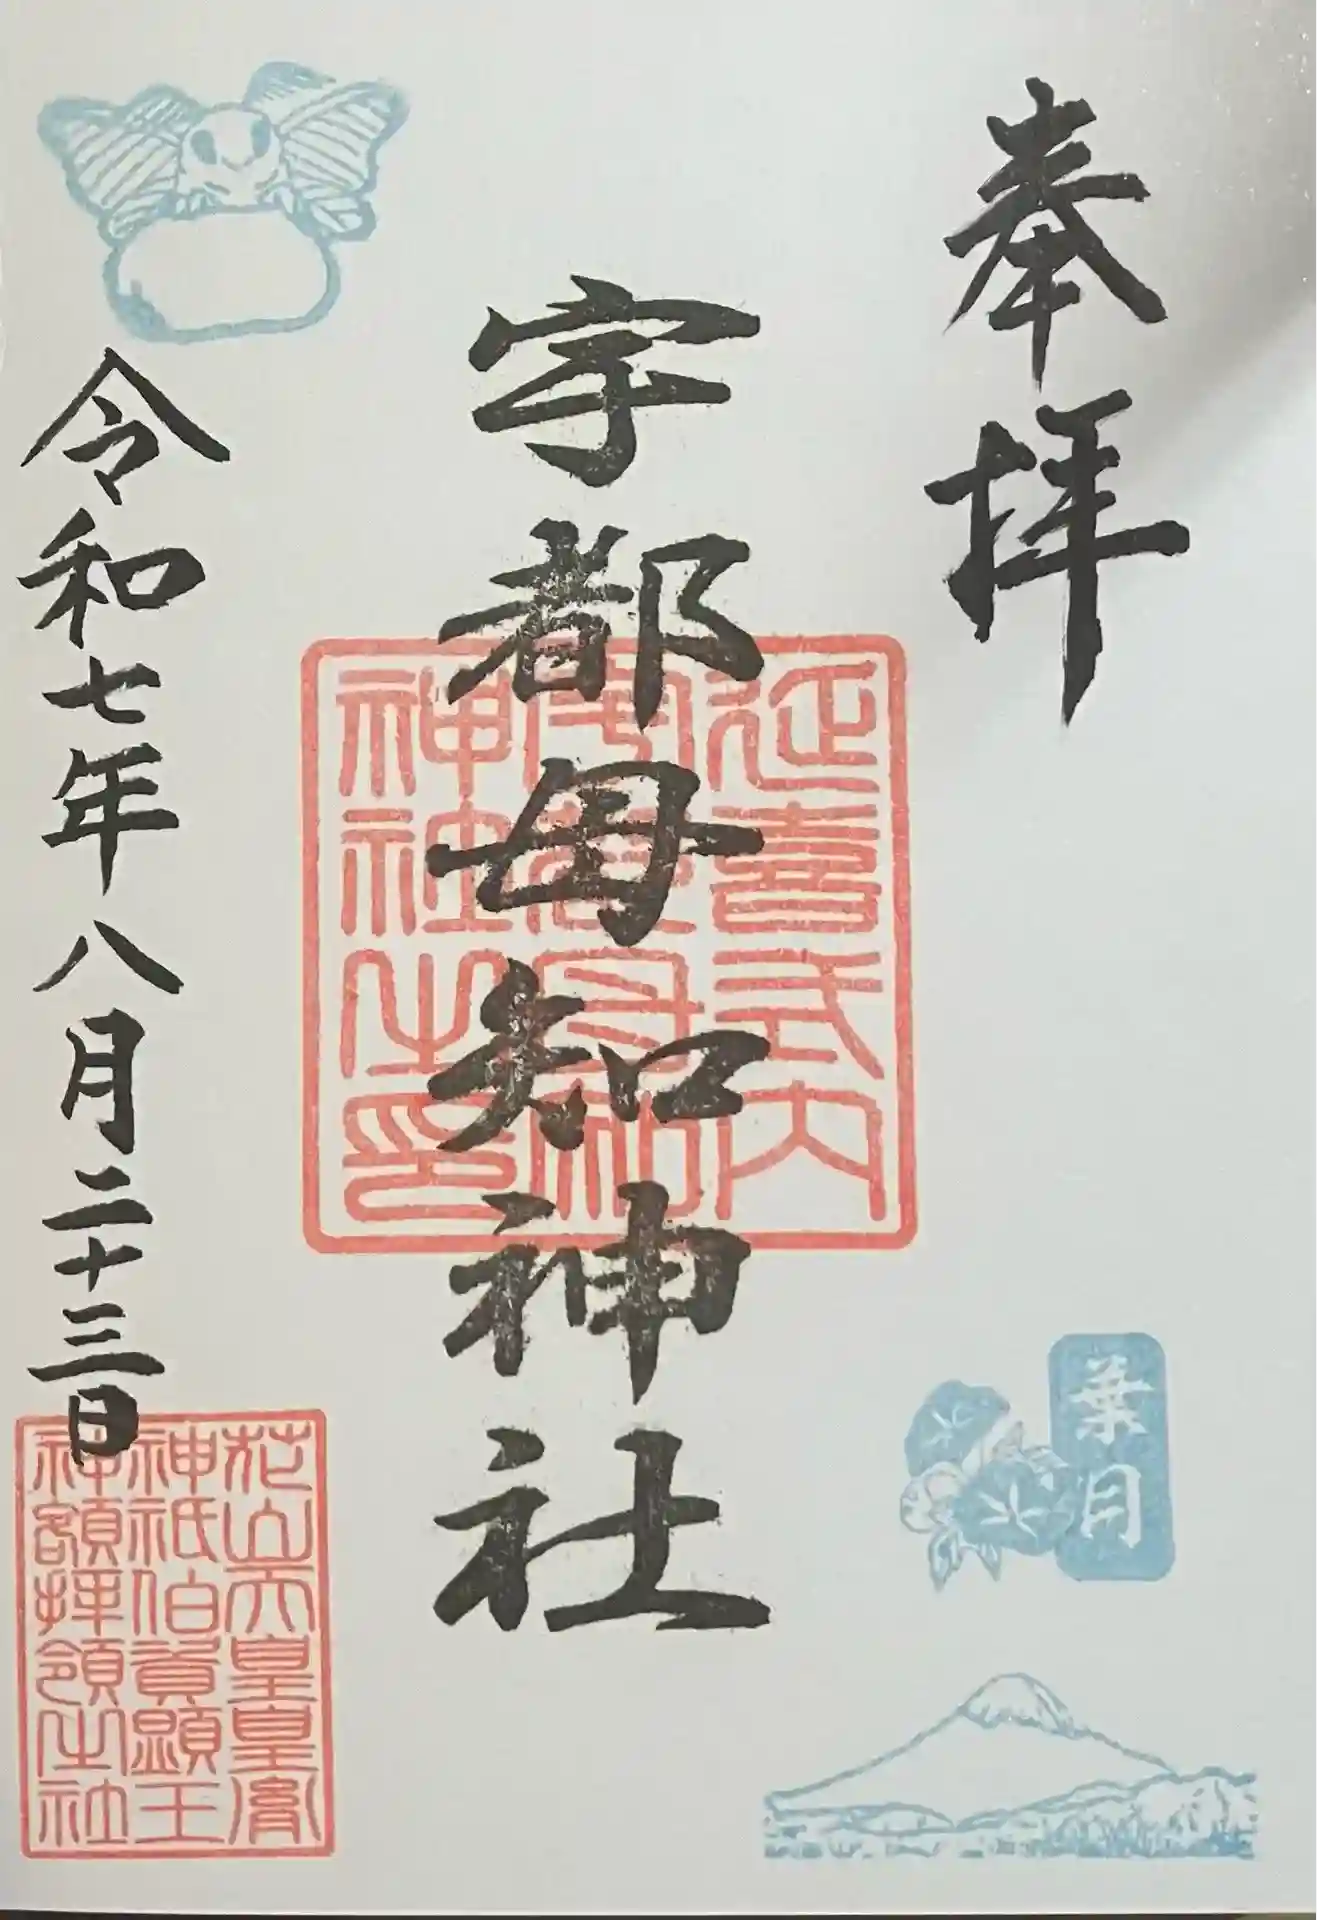 奉拝
葉月
宇都母知神社
延喜式内
宇都母知
神社之印
令和七年八月二十三日
花山天皇皇胤
神祇伯資顕王
神額拝領之社